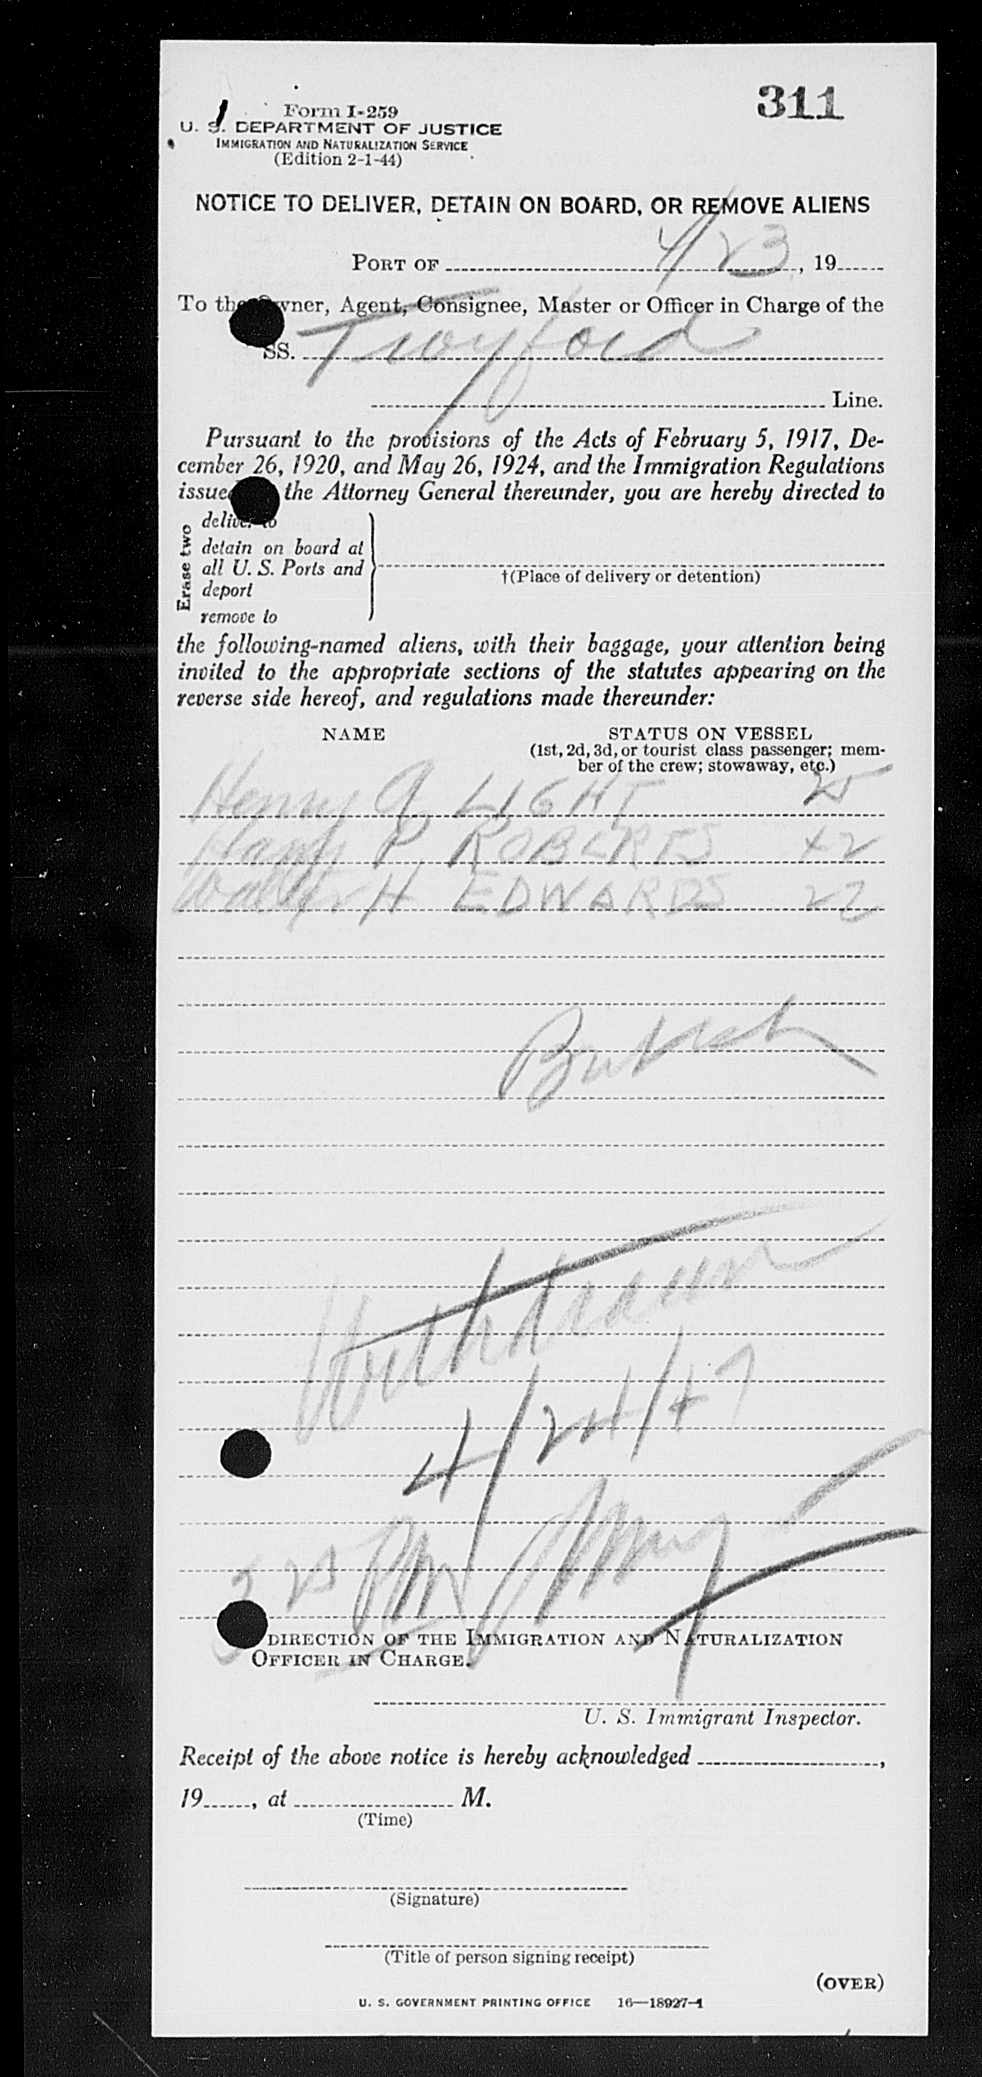 311
Form I-259
U. S. DEPARTMENT OF JUSTICE
IMMIGRATION AND NATURALIZATION SERVICE
(Edition 2-1-44)
NOTICE TO DELIVER, DETAIN ON BOARD, OR REMOVE ALIENS
PORT OF 4/23, 19
To the Owner, Agent, Consignee, Master or Officer in Charge of the
SS.
Line.
Pursuant to the provisions of the Acts of February 5, 1917, De-
cember 26, 1920, and May 26, 1924, and the Immigration Regulations
issued the Attorney General thereunder, you are hereby directed to
Erase two
deliver to
detain on board at
all U. S. Ports and
deport
remove to
†(Place of delivery or detention)
the following-named aliens, with their baggage, your attention being
invited to the appropriate sections of the statutes appearing on the
reverse side hereof, and regulations made thereunder:
NAME STATUS ON VESSEL
(1st, 2d, 3d, or tourist class passenger; mem-
ber of the crew; stowaway, etc.)
Henry A LIGHT 25
Harry P ROBERTS 42
Walter H EDWARDS 22
British
Withdrawn
4/24/47
DIRECTION OF THE IMMIGRATION AND NATURALIZATION
OFFICER IN CHARGE.
U. S. Immigrant Inspector.
Receipt of the above notice is hereby acknowledged ,
19 , at M.
(Time)
(Signature)
(Title of person signing receipt)
(OVER)
U. S. GOVERNMENT PRINTING OFFICE 16—18927-1